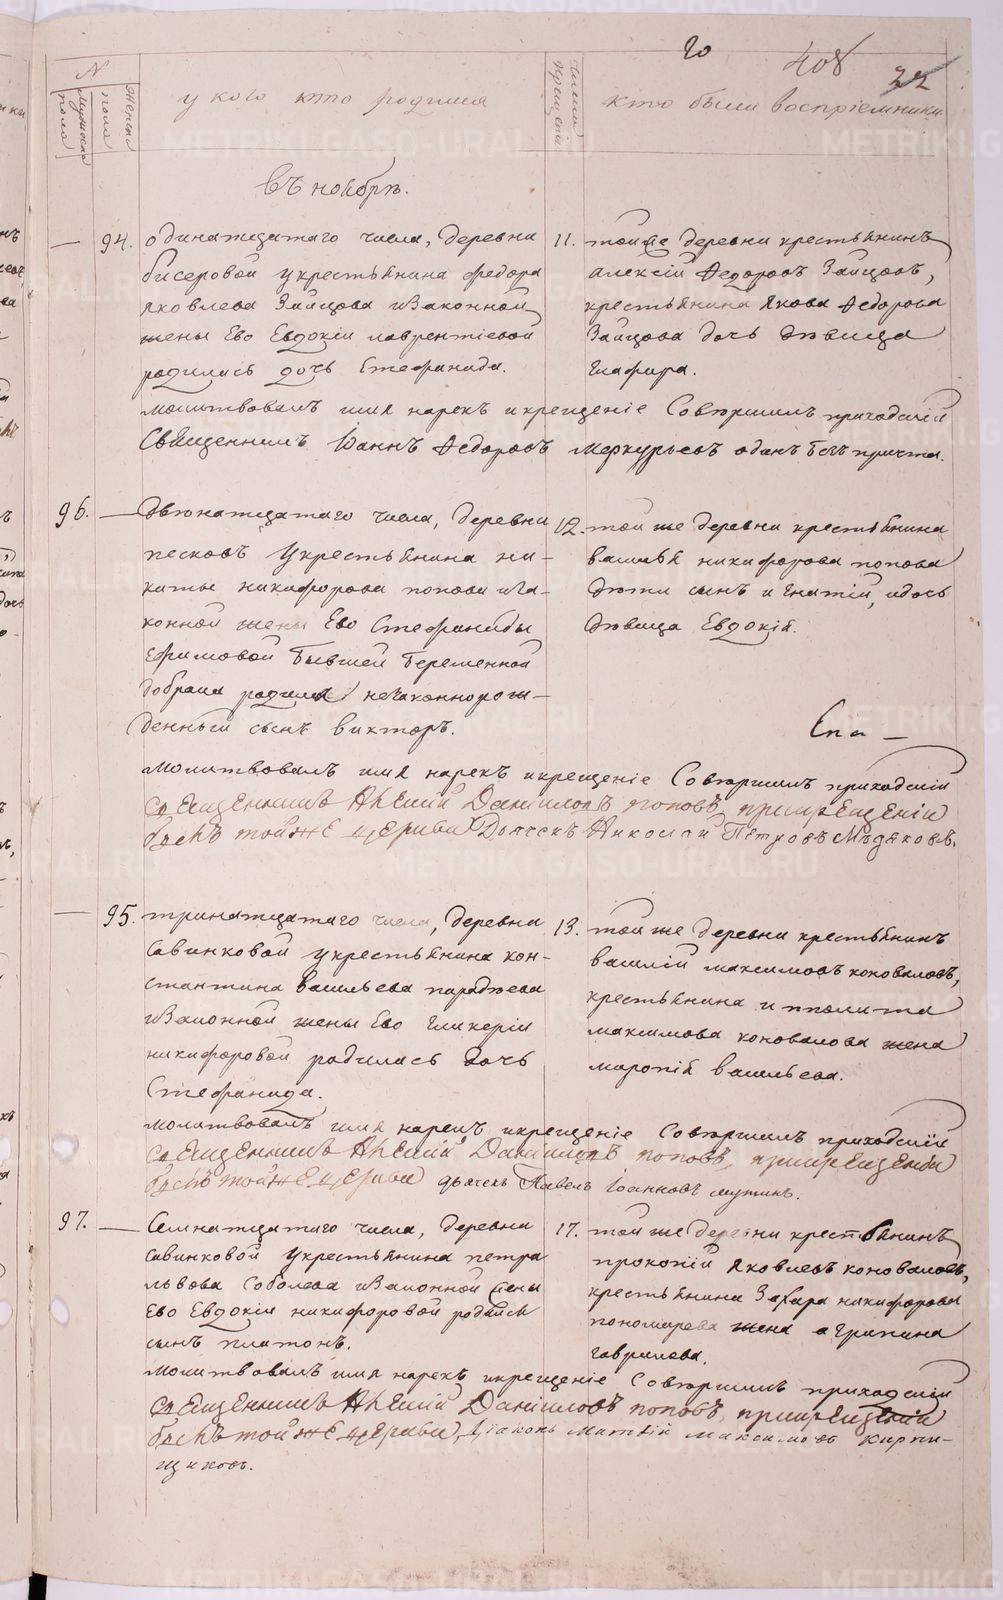 20
408
32
N
Мужеска пола
Женска пола
у кого кто родился
Число крещенія
кто были воспріемники.
въ ноябрѣ.
— 94. одинатцатаго числа, деревни
бисеровой укрестьянина Федора
яковлева Зайцова изаконной
жены Ево Евдокіи лаврентіевой
родилась дочь Стефанида.
11. тойже деревни крестьянинъ
Алексій Федоровъ Зайцовъ,
крестьянина Якова Федорова
Зайцова дочь дѣвица
Глафира.
молитвовалъ имя нарекъ икрещеніе Совершилъ приходскій
Священникъ Іоаннъ Федоровъ Меркурьевъ одинъ безъ причта.
96. — Двенатцатаго числа, деревни
песковъ укрестьянина ни-
киты никифорова попова иза-
конной жены Ево Стефаниды
Ефимовой бывшей беременной
добрака родился незаконнорож-
денный сынъ викторъ.
12. той же деревни крестьянина
василья никифорова попова
дѣти сынъ игнатій, идочь
дѣвица Евдокія.
Спа —
молитвовалъ имя нарекъ икрещеніе Совершилъ приходскій
священникъ Алексій Даниловъ поповъ, прикрещеніи
былъ тойже церкви Дьячекъ Николай Петровъ Мѣдяковъ.
— 95. тринатцатаго числа, деревни
савинковой укрестьянина кон-
стантина васильева параджева
изаконной жены Ево Гликеріи
никифоровой родилась дочь
Стефанида.
13. той же деревни крестьянинъ
василій максимовъ коноваловъ,
крестьянина ипполита
максимова коновалова жена
марѳія васильева.
молитвовалъ имя нарекъ икрещеніе Совершилъ приходскій
священникъ Алексій Даниловъ поповъ, прикрещеніи
былъ тойже церкви дьячекъ Павелъ Іоанновъ
97. — Семнатцатаго числа, деревни
савинковой укрестьянина петра
львова Соболева изаконной жены
Ево Евдокіи никифоровой родился
сынъ платонъ.
17. той же деревни крестьянинъ
прокопій Яковлевъ коноваловъ,
крестьянина Захара никифорова
пономарева жена агрипина
гаврилева.
молитвовалъ имя нарекъ икрещеніе Совершилъ приходскій
священникъ Алексій Даниловъ поповъ, прикрещеніи
былъ тойже церкви, діаконъ матвій максимовъ Кирпи-
щиковъ.
METRIKI.GASO-URAL.RU